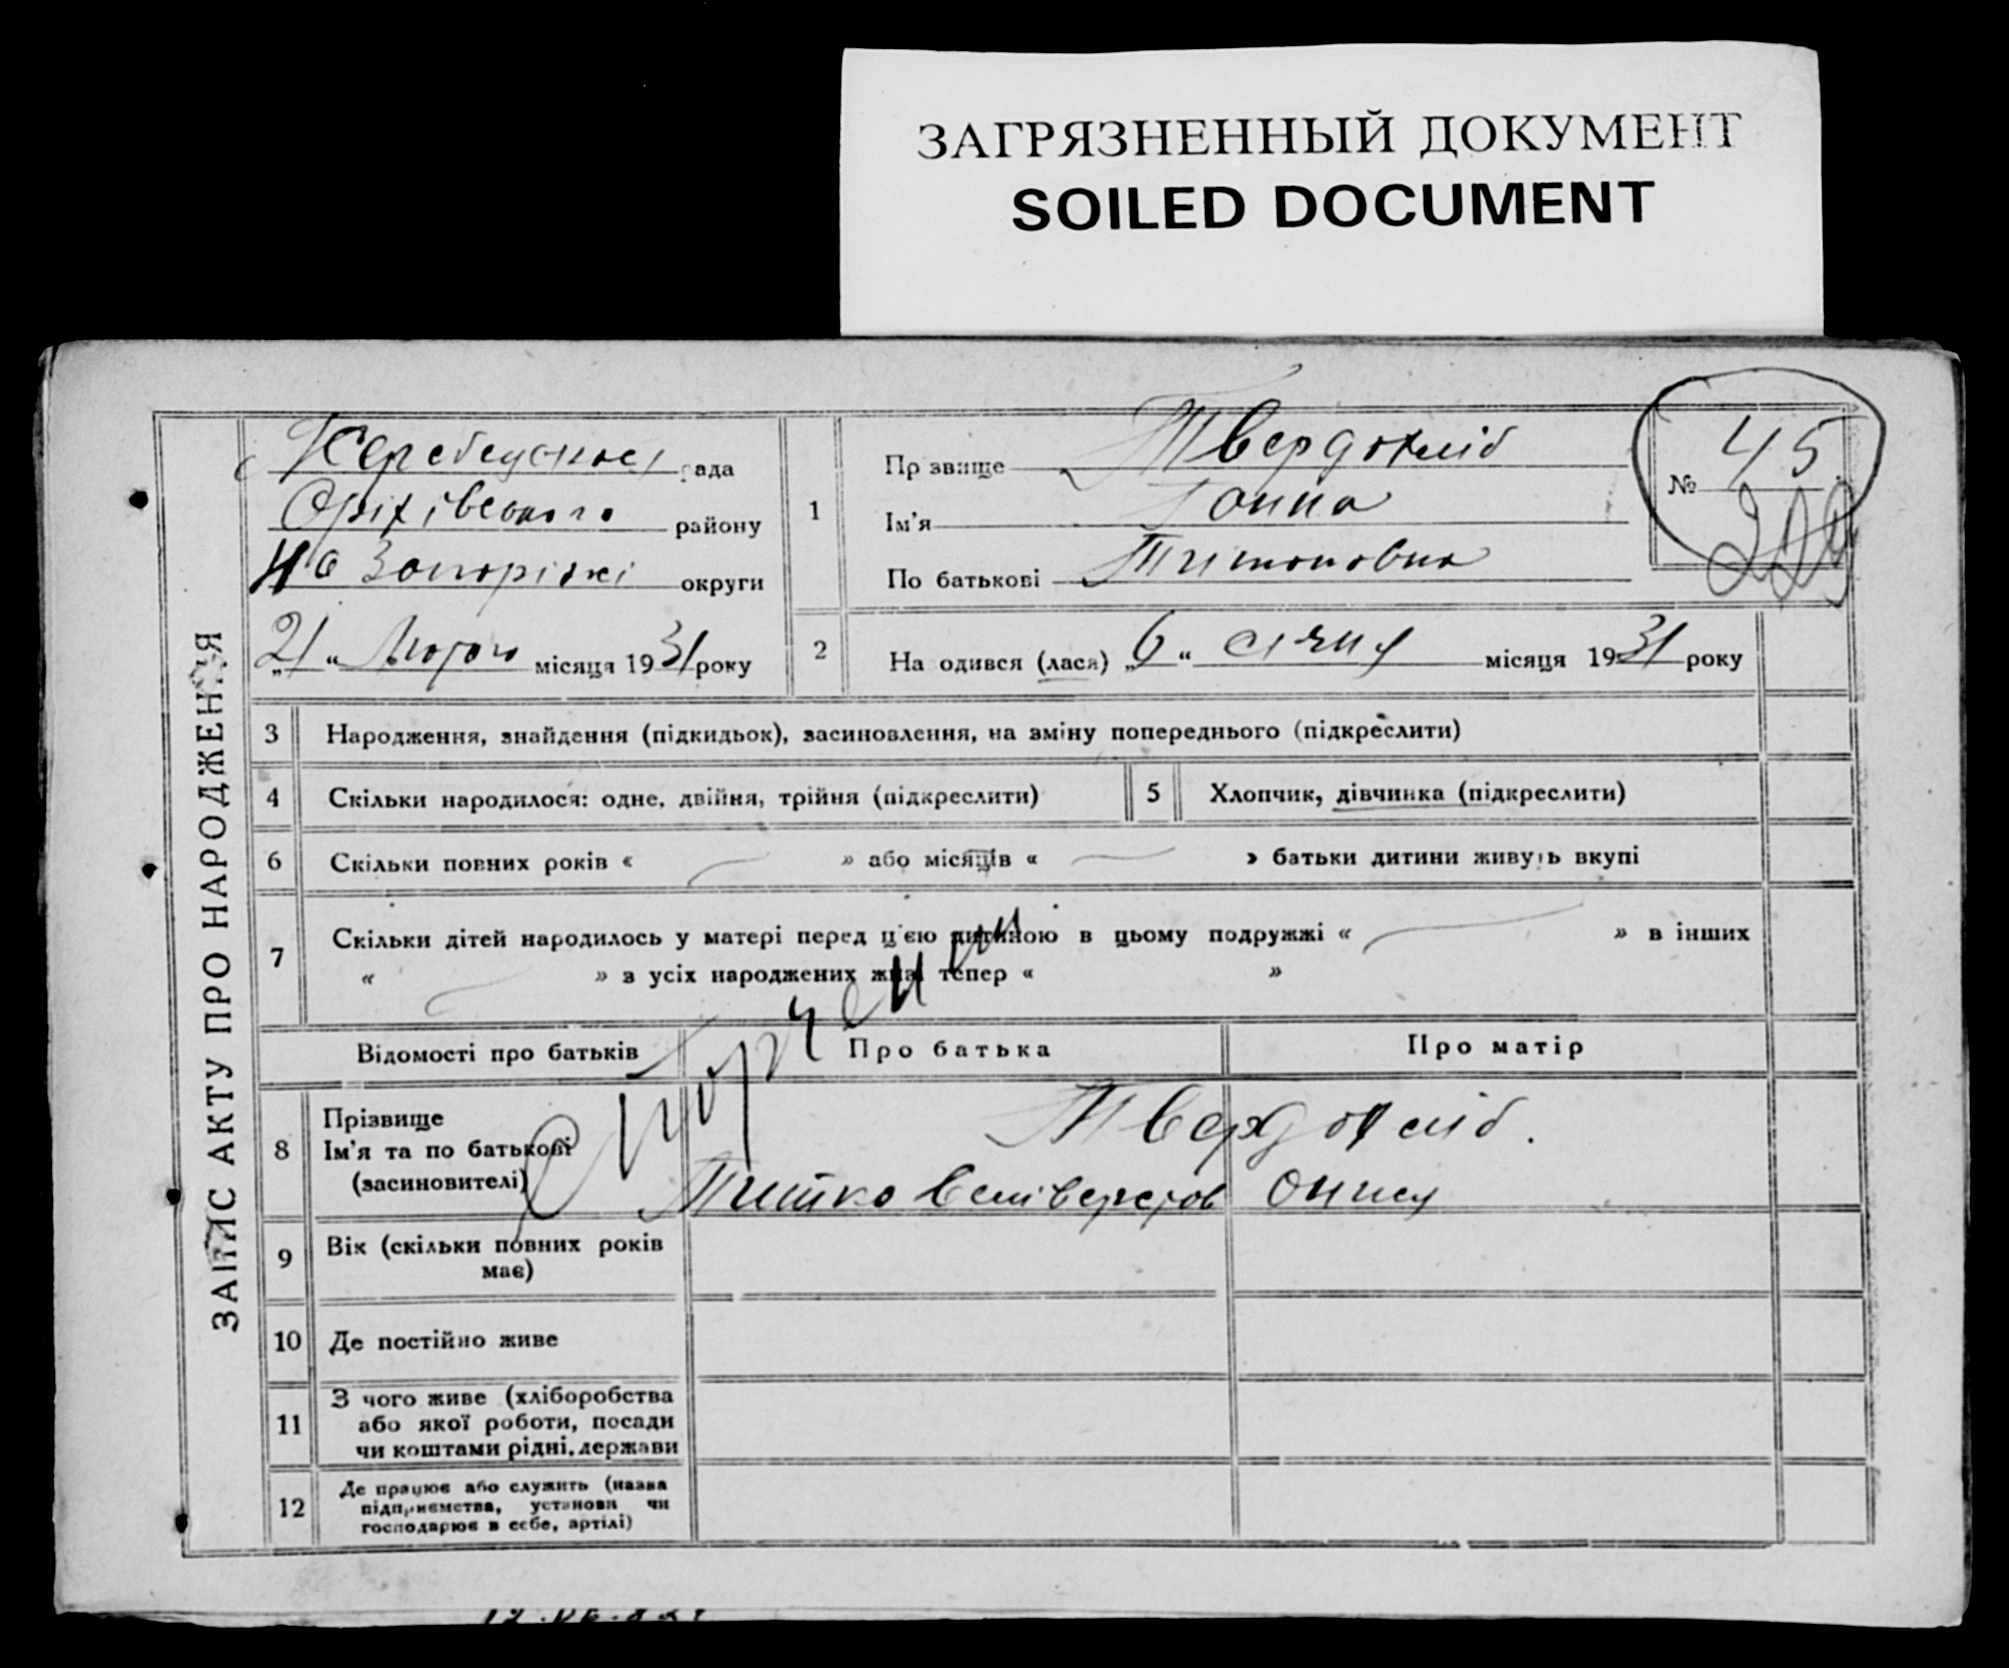 ЗАГРЯЗНЕННЫЙ ДОКУМЕНТ
SOILED DOCUMENT
ЗАПИС АКТУ ПРО НАРОДЖЕННЯ
рада
Оріхівського району
на Запоріжжі округи
„21“ Лютого місяця 1931 року
1
Прізвище Твердохліб
Ім'я Ганна
По батькові Титоновна
№ 45
209
2 На одився (лася) „6“ січня місяця 1931 року
3 Народження, знайдення (підкидьок), засиновлення, на зміну попереднього (підкреслити)
4 Скільки народилося: одне, двійня, трійня (підкреслити) 5 Хлопчик, дівчинка (підкреслити)
6 Скільки повних років « » або місяців « » батьки дитини живуть вкупі
7 Скільки дітей народилось у матері перед цією дитиною в цьому подружжі « » в інших
« » з усіх народжених живі тепер « »
Відомості про батьків Про батька Про матір
8 Прізвище
Ім'я та по батькові
(засиновителі)
Твердохліб.
Титко Селіверстов Онися
9 Вік (скільки повних років
має)
10 Де постійно живе
11 З чого живе (хліборобства
або якої роботи, посади
чи коштами рідні, держави
12 Де працює або служить (назва
підприємства, установи чи
господарює в себе, артілі)